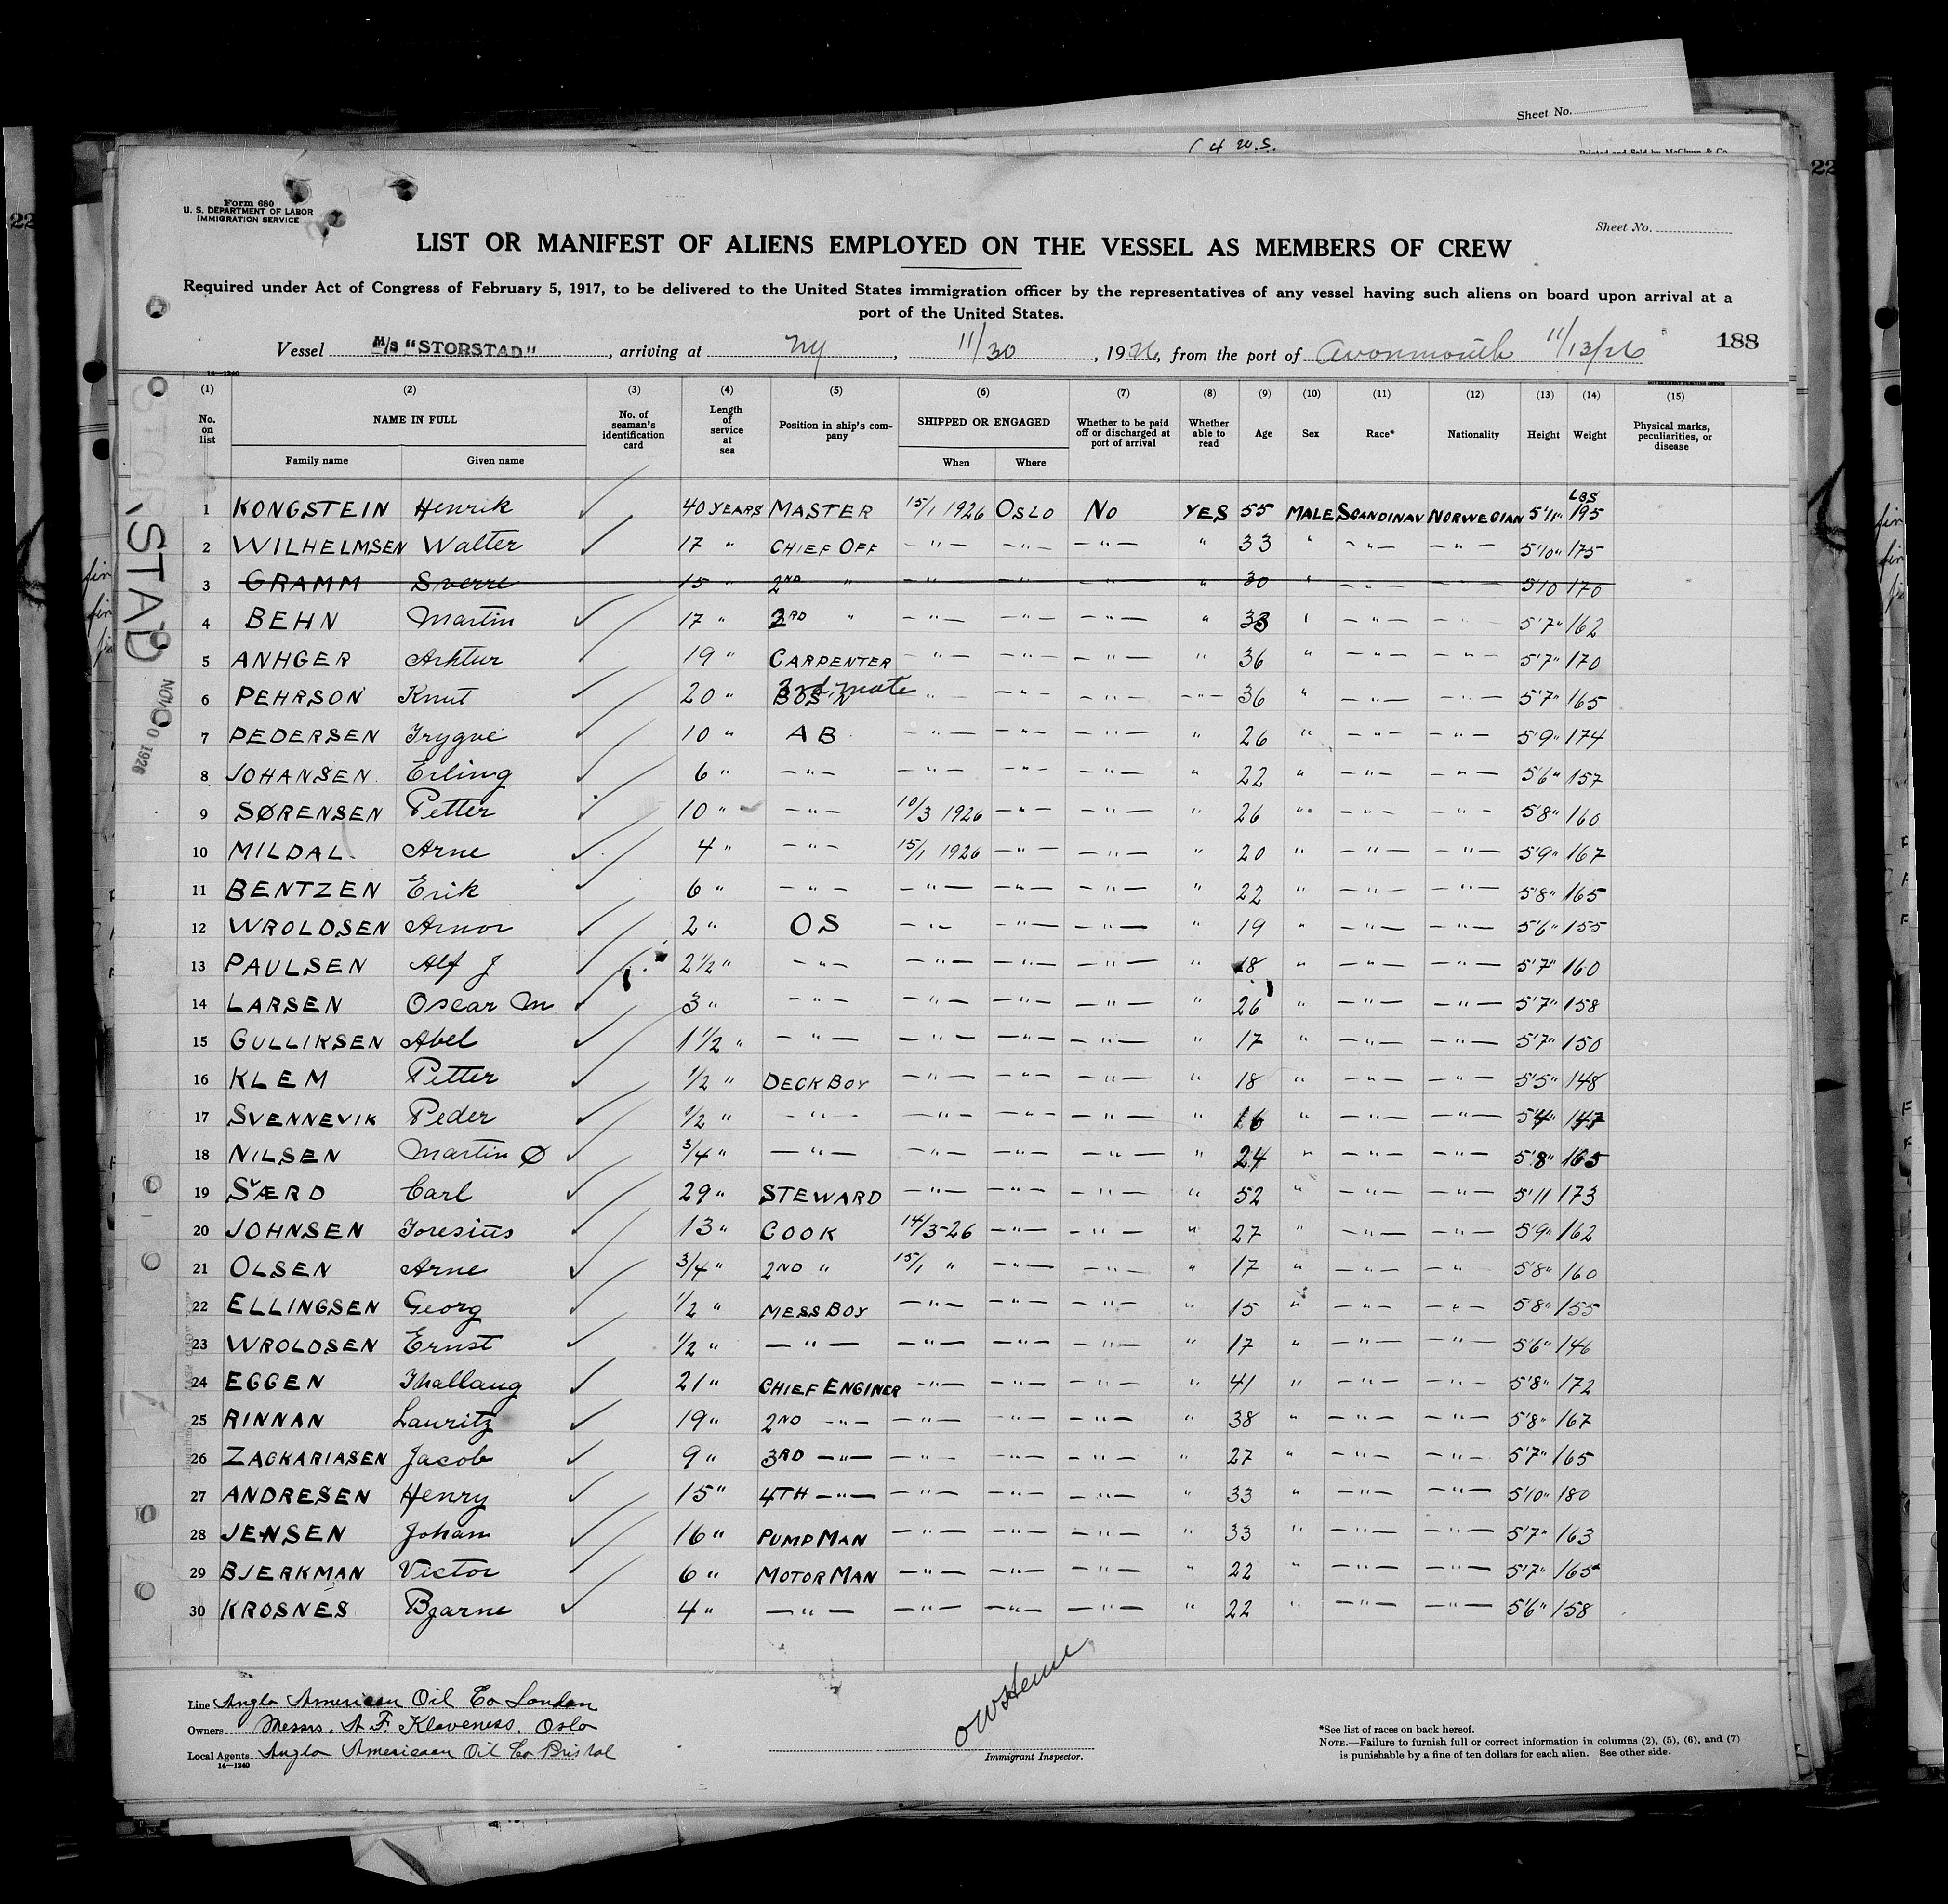 Sheet No.
( 4 W.S.
Printed and Sold by McClung & Co.
22
22
Form 680
U. S. DEPARTMENT OF LABOR
IMMIGRATION SERVICE
Sheet No.
LIST OR MANIFEST OF ALIENS EMPLOYED ON THE VESSEL AS MEMBERS OF CREW
Required under Act of Congress of February 5, 1917, to be delivered to the United States immigration officer by the representatives of any vessel having such aliens on board upon arrival at a
port of the United States.
188
Vessel M/S "STORSTAD", arriving at NY, 11/30, 1926, from the port of Avonmouth 11/13/26
14—1240
(1) (2) (3) (4) (5) (6) (7) (8) (9) (10) (11) (12) (13) (14) (15)
No. on list NAME IN FULL No. of seaman's identification card Length of service at sea Position in ship's company SHIPPED OR ENGAGED Whether to be paid off or discharged at port of arrival Whether able to read Age Sex Race* Nationality Height Weight Physical marks, peculiarities, or disease
Family name Given name When Where
1 KONGSTEIN Henrik 40 YEARS MASTER 15/1 1926 OSLO NO YES 55 MALE SCANDINAV NORWEGIAN 5'11" LBS 195
2 WILHELMSEN Walter 17 " CHIEF OFF —"— —"— —"— " 33 " —"— —"— 5'10" 175
3 GRAMM Sverre 15 " 2ND " —"— —"— —"— " 30 " —"— —"— 5'10 170
4 BEHN Martin 17 " 3RD " —"— —"— —"— " 33 " —"— —"— 5'7" 162
5 ANHGER Arhtur 19 " CARPENTER —"— —"— —"— " 36 " —"— —"— 5'7" 170
6 PEHRSON Knut 20 " BOS'N 3rd mate —"— —"— —"— —"— 36 " —"— —"— 5'7" 165
7 PEDERSEN Trygve 10 " AB —"— —"— —"— " 26 " —"— —"— 5'9" 174
8 JOHANSEN Erling 6 " —"— —"— —"— —"— " 22 " —"— —"— 5'6" 157
9 SØRENSEN Petter 10 " —"— 10/3 1926 —"— —"— " 26 " —"— —"— 5'8" 160
10 MILDAL Arne 4 " —"— 15/1 1926 —"— —"— " 20 " —"— —"— 5'9" 167
11 BENTZEN Erik 6 " —"— —"— —"— —"— " 22 " —"— —"— 5'8" 165
12 WROLDSEN Arnor 2 " OS —"— —"— —"— " 19 " —"— —"— 5'6" 155
13 PAULSEN Alf J 2 1/2 " —"— —"— —"— —"— " 18 " —"— —"— 5'7" 160
14 LARSEN Oscar M 3 " —"— —"— —"— —"— " 26 " —"— —"— 5'7" 158
15 GULLIKSEN Abel 1 1/2 " —"— —"— —"— —"— " 17 " —"— —"— 5'7" 150
16 KLEM Petter 1/2 " DECK BOY —"— —"— —"— " 18 " —"— —"— 5'5" 148
17 SVENNEVIK Peder 1/2 " —"— —"— —"— —"— " 16 " —"— —"— 5'4" 147
18 NILSEN Martin Ø 3/4 " —"— —"— —"— —"— " 24 " —"— —"— 5'8" 165
19 SVÆRD Carl 29 " STEWARD —"— —"— —"— " 52 " —"— —"— 5'11 173
20 JOHNSEN Toresius 13 " COOK 14/3-26 —"— —"— " 27 " —"— —"— 5'9" 162
21 OLSEN Arne 3/4 " 2ND " 15/1 " —"— —"— " 17 " —"— —" 5'8" 160
22 ELLINGSEN Georg 1/2 " MESS BOY —"— —"— —"— " 15 " —"— —"— 5'8" 155
23 WROLDSEN Ernst 1/2 " —"— —"— —"— —"— " 17 " —"— —"— 5'6" 146
24 EGGEN Thallaug 21 " CHIEF ENGINER —"— —"— —"— " 41 " —"— —"— 5'8" 172
25 RINNAN Lauritz 19 " 2ND —"— —"— —"— —"— " 38 " —"— —"— 5'8" 167
26 ZACKARIASEN Jacob 9 " 3RD —"— —"— —"— —"— " 27 " —"— —"— 5'7" 165
27 ANDRESEN Henry 15 " 4TH —"— —"— —"— —"— " 33 " —"— —"— 5'10" 180
28 JENSEN Johan 16 " PUMP MAN —"— —"— —"— " 33 " —"— —"— 5'7" 163
29 BJERKMAN Victor 6 " MOTOR MAN —"— —"— —"— " 22 " —"— —"— 5'7" 165
30 KROSNES Bjarne 4 " —"— —"— —"— —"— " 22 " —"— —"— 5'6" 158
STAD
NOV 30 1926
Line Anglo American Oil Co London
Owners Messrs. A F. Klaveness. Oslo
Local Agents Anglo American Oil Co Bristol
14—1240
Immigrant Inspector.
*See list of races on back hereof.
NOTE.—Failure to furnish full or correct information in columns (2), (5), (6), and (7)
is punishable by a fine of ten dollars for each alien. See other side.